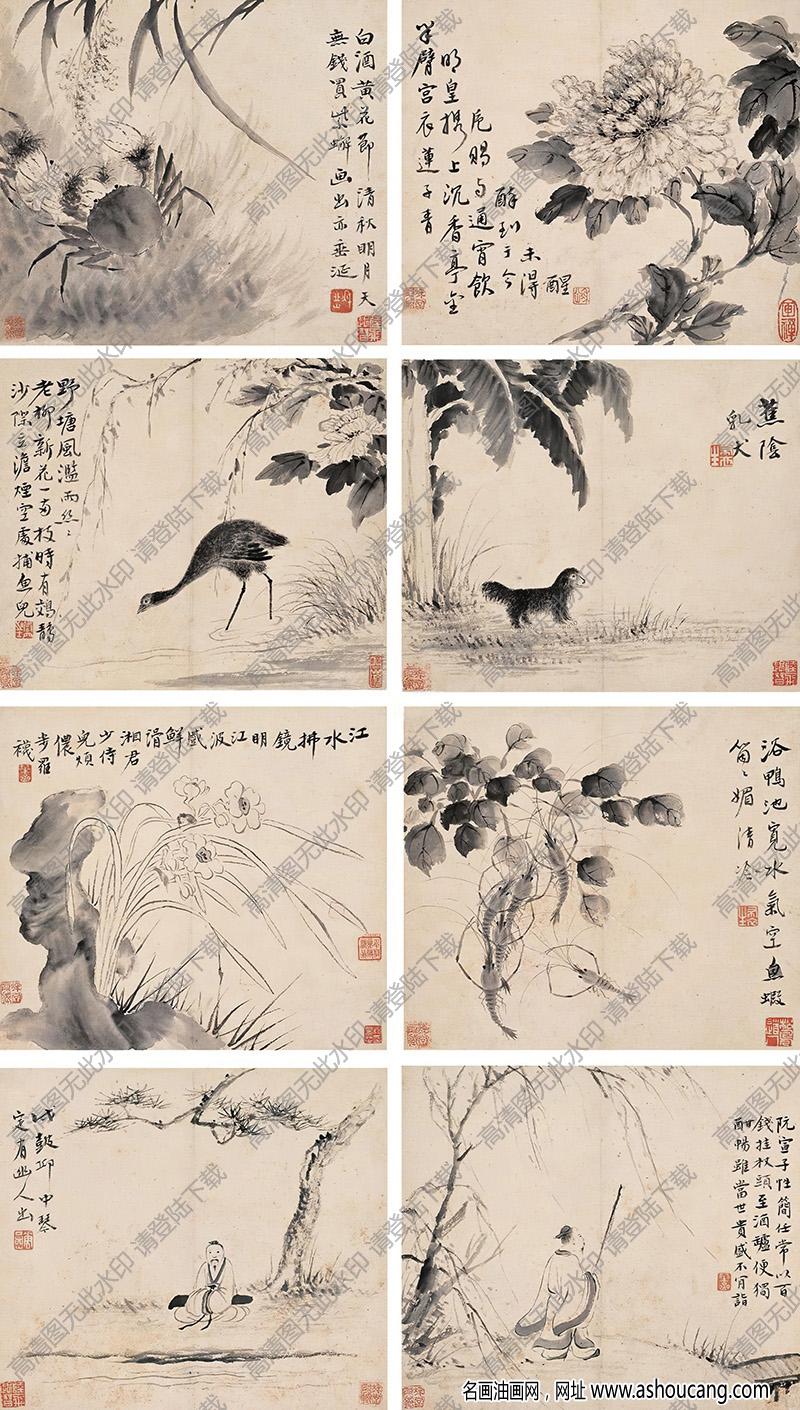 白酒黄花節清秋明月天
無錢買紫蠏画出亦垂涎
半臂宮衣蓮子青
明皇携上沉香亭金
卮賜与通宵飲
酔到于今
未得醒
野塘風濫雨丝〻
老柳新花一両枝時有鵁鶄
沙際立澹煙空處捕魚兒
蕉陰
乳犬
江水拂鏡明江波盛鮮滑湘君少侍兒煩儂步羅襪
浴鴨池寬水氣空魚蝦
箇〻媚清泠
鼓邱中琴
定有幽人出
阮宣子性簡任常以百
錢挂杖頭至酒壚便獨
酣暢雖當世貴盛不肯詣
高清图无此水印 请登陆下载
名画油画网，网址 www.ashoucang.com